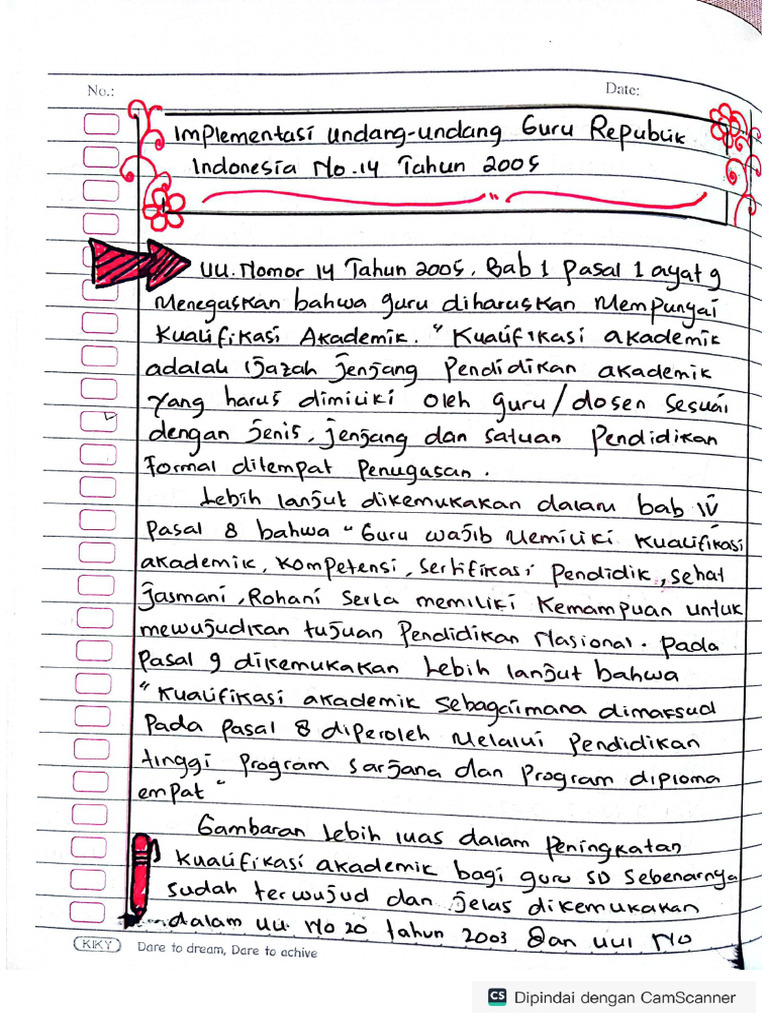 No.:
Date:
Implementasi Undang-undang Guru Republik
Indonesia No.14 Tahun 2005
UU. Nomor 14 Tahun 2005, Bab 1 Pasal 1 ayat 9
Menegaskan bahwa guru diharuskan Mempunyai
Kualifikasi Akademik. "Kualifikasi akademik
adalah ijazah jenjang Pendidikan akademik
yang harus dimiliki oleh guru/dosen sesuai
dengan jenis, jenjang dan satuan Pendidikan
Formal ditempat Penugasan.
Lebih lanjut dikemukakan dalam bab IV
Pasal 8 bahwa "Guru wajib Memiliki Kualifikasi
akademik, Kompetensi, sertifikasi Pendidik, sehat
Jasmani, Rohani serta memiliki Kemampuan untuk
mewujudkan tujuan Pendidikan Nasional. Pada
Pasal 9 dikemukakan Lebih lanjut bahwa
"Kualifikasi akademik sebagaimana dimaksud
Pada Pasal 8 diperoleh Melalui Pendidikan
tinggi Program sarjana dan Program diploma
empat"
Gambaran Lebih luas dalam Peningkatan
Kualifikasi akademik bagi guru SD Sebenarnya
sudah terwujud dan jelas dikemukakan
dalam UU. No 20 tahun 2003 Dan UUI No
KIKY Dare to dream, Dare to achive
CS Dipindai dengan CamScanner